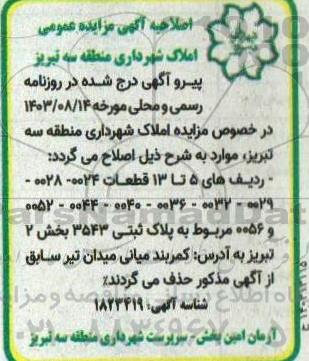 اصلاحیه آگهی مزایده عمومی
املاک شهرداری منطقه سه تبریز
پیرو آگهی درج شده در روزنامه
رسمی و محلی مورخه ۱۴۰۳/۰۸/۱۴
در خصوص مزایده املاک شهرداری منطقه سه
تبریز، موارد به شرح ذیل اصلاح می گردد:
- ردیف های ۵ تا ۱۳ قطعات ۰۰۲۴- ۰۰۲۸ -
۰۰۲۹ - ۰۰۳۲ - ۰۰۳۶ - ۰۰۴۰ - ۰۰۴۴ - ۰۰۵۲
و ۰۰۵۶ مربوط به پلاک ثبتی ۳۵۴۳ بخش ۲
تبریز به آدرس: کمربند میانی میدان تیر سابق
از آگهی مذکور حذف می گردند٪
شناسه آگهی: ۱۸۲۳۴۱۹
آرمان امین بخش - سرپرست شهرداری منطقه سه تبریز